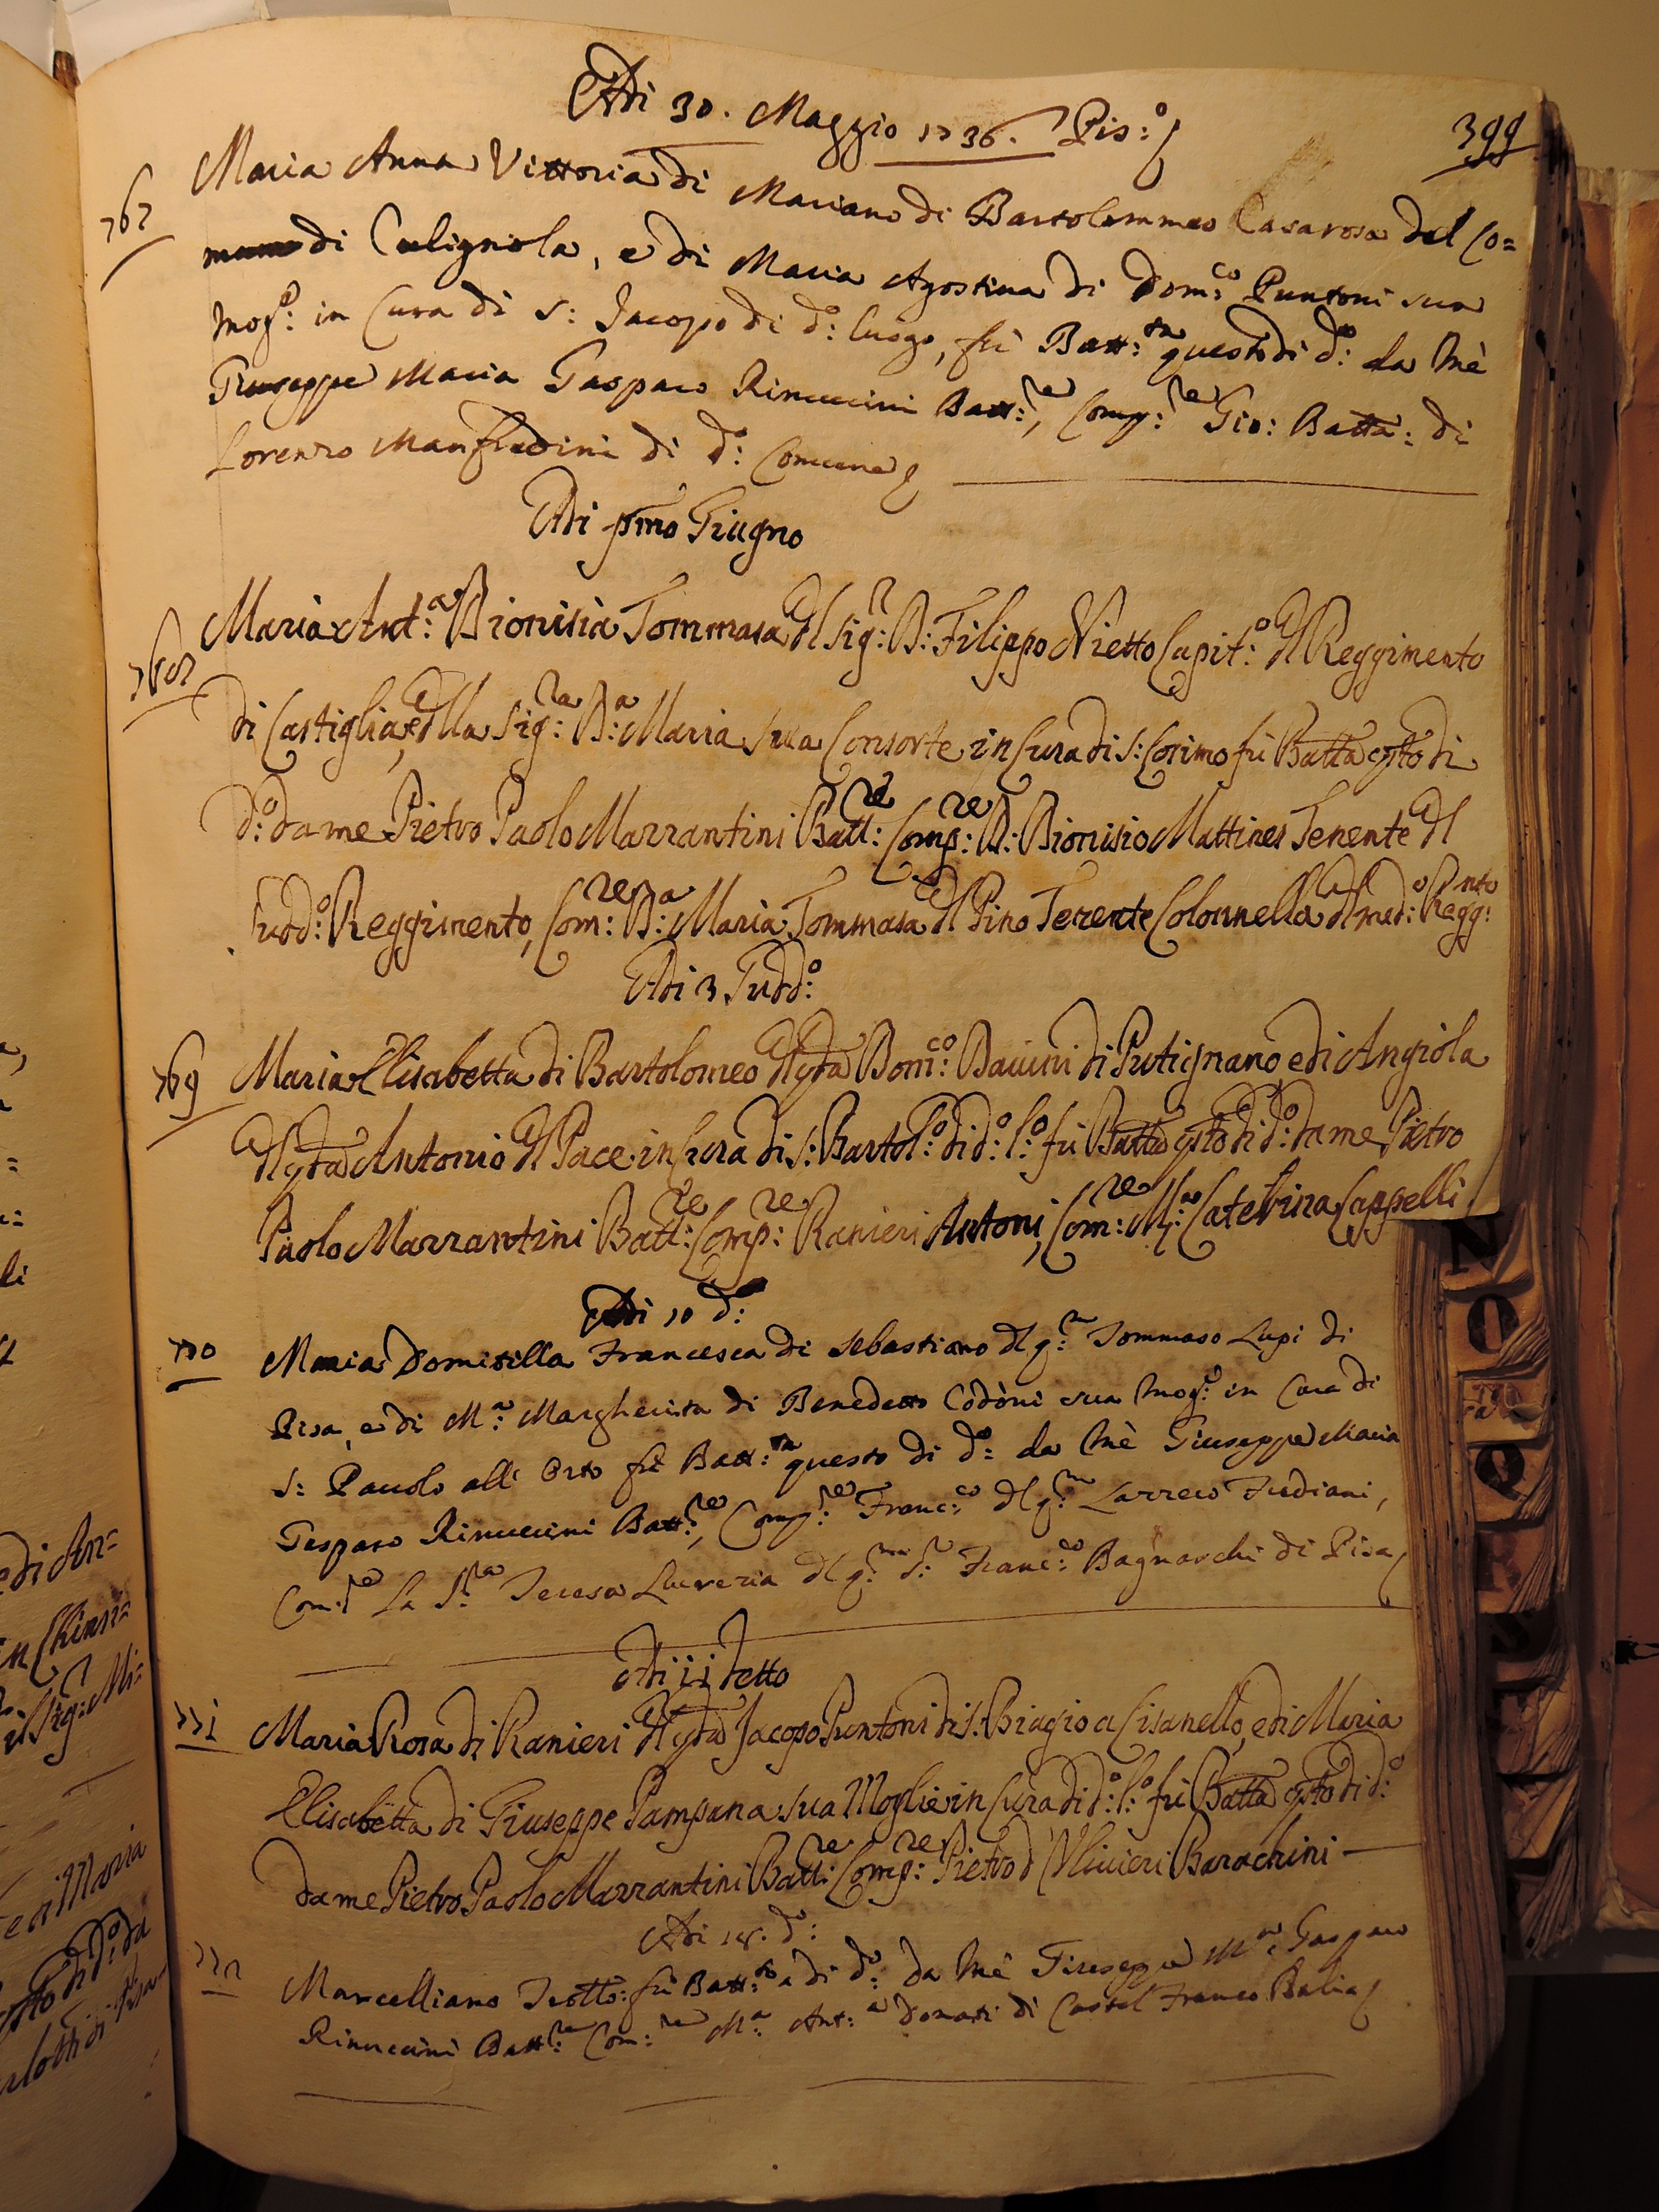 Adi 30. Maggio 1736. Pis:o
399
767
Maria Anna Vittoria di Mariano di Bartolommeo Casarosa del Co=
mune di Calignola, e di Maria Agostina di Dom:co Puntoni sua
Mog:e in Cura di S: Jacopo di d:o luogo, fù Batt:ta questo di d:o da Mè
Giuseppe Maria Gasparo Rinuccini Batt:re, Comp:re Gio: Batta: di
Lorenzo Manfredini di d:o Comune
Adi pmo Giugno
768
Maria Ant:a Dionisia Tommasa dl Sig:r D: Filippo Nietto Capit:o dl Reggimento
di Castiglia, e dlla Sig:ra D:a Maria sua Consorte in Cura di S: Cosimo fù Batta qsto di
d:o da me Pietro Paolo Marrantini Batt:re Comp:re D: Dionisio Mattines Tenente dl
sudd:o Reggimento, Com:re D:a Maria Tommasa dl Pino Tenente Colonnella dl med:o Regg:nto
Adi 3 Sudd:o
769
Maria Elisabetta di Bartolomeo dl qdā Dom:co Bavini di Putignano e di Angiola
dl qdā Antonio dl Pace in Cura di S: Bartol:o di d:o l:o fù Batta qsto di d:o da me Pietro
Paolo Marrantini Batt:re Comp:re Ranieri Antoni, Com:re M:a Caterina Cappelli
Adi 10 d:o
770
Maria Domitilla Francesca di Sebastiano dl q:m Tommaso Lupi di
Pisa, e di M:a Margherita di Benedetto Còdòni sua Mog:e in Cura di
S: Pauolo all' Orto fù Batt:ta questo di d:o da Mè Giuseppe Maria
Gasparo Rinuccini Batt:re, Comp:re Franc:co dl q:m Larreco Fudiani,
Com:re La S:ra Teresa Lucrezia dl q:m S:r Franc:co Bagnarchi di Pisa
Adi 11 detto
771
Maria Rosa di Ranieri dl qdā Jacopo Puntoni di S: Biagio a Cisanello, e di Maria
Elisabetta di Giuseppe Pampana sua Moglie in Cura di d:o l:o fù Batta qsto di d:o
da me Pietro Paolo Marrantini Batt:re Comp:re Pietro d' Ulivieri Barachini
Adi 18. d:o
772
Marcelliano Trotto: fù Batt:to a di d:o da Mè Giuseppe M:a Gasparo
Rinuccini Batt:re Com:re M:a Ant:a Donati di Castel Franco Balia